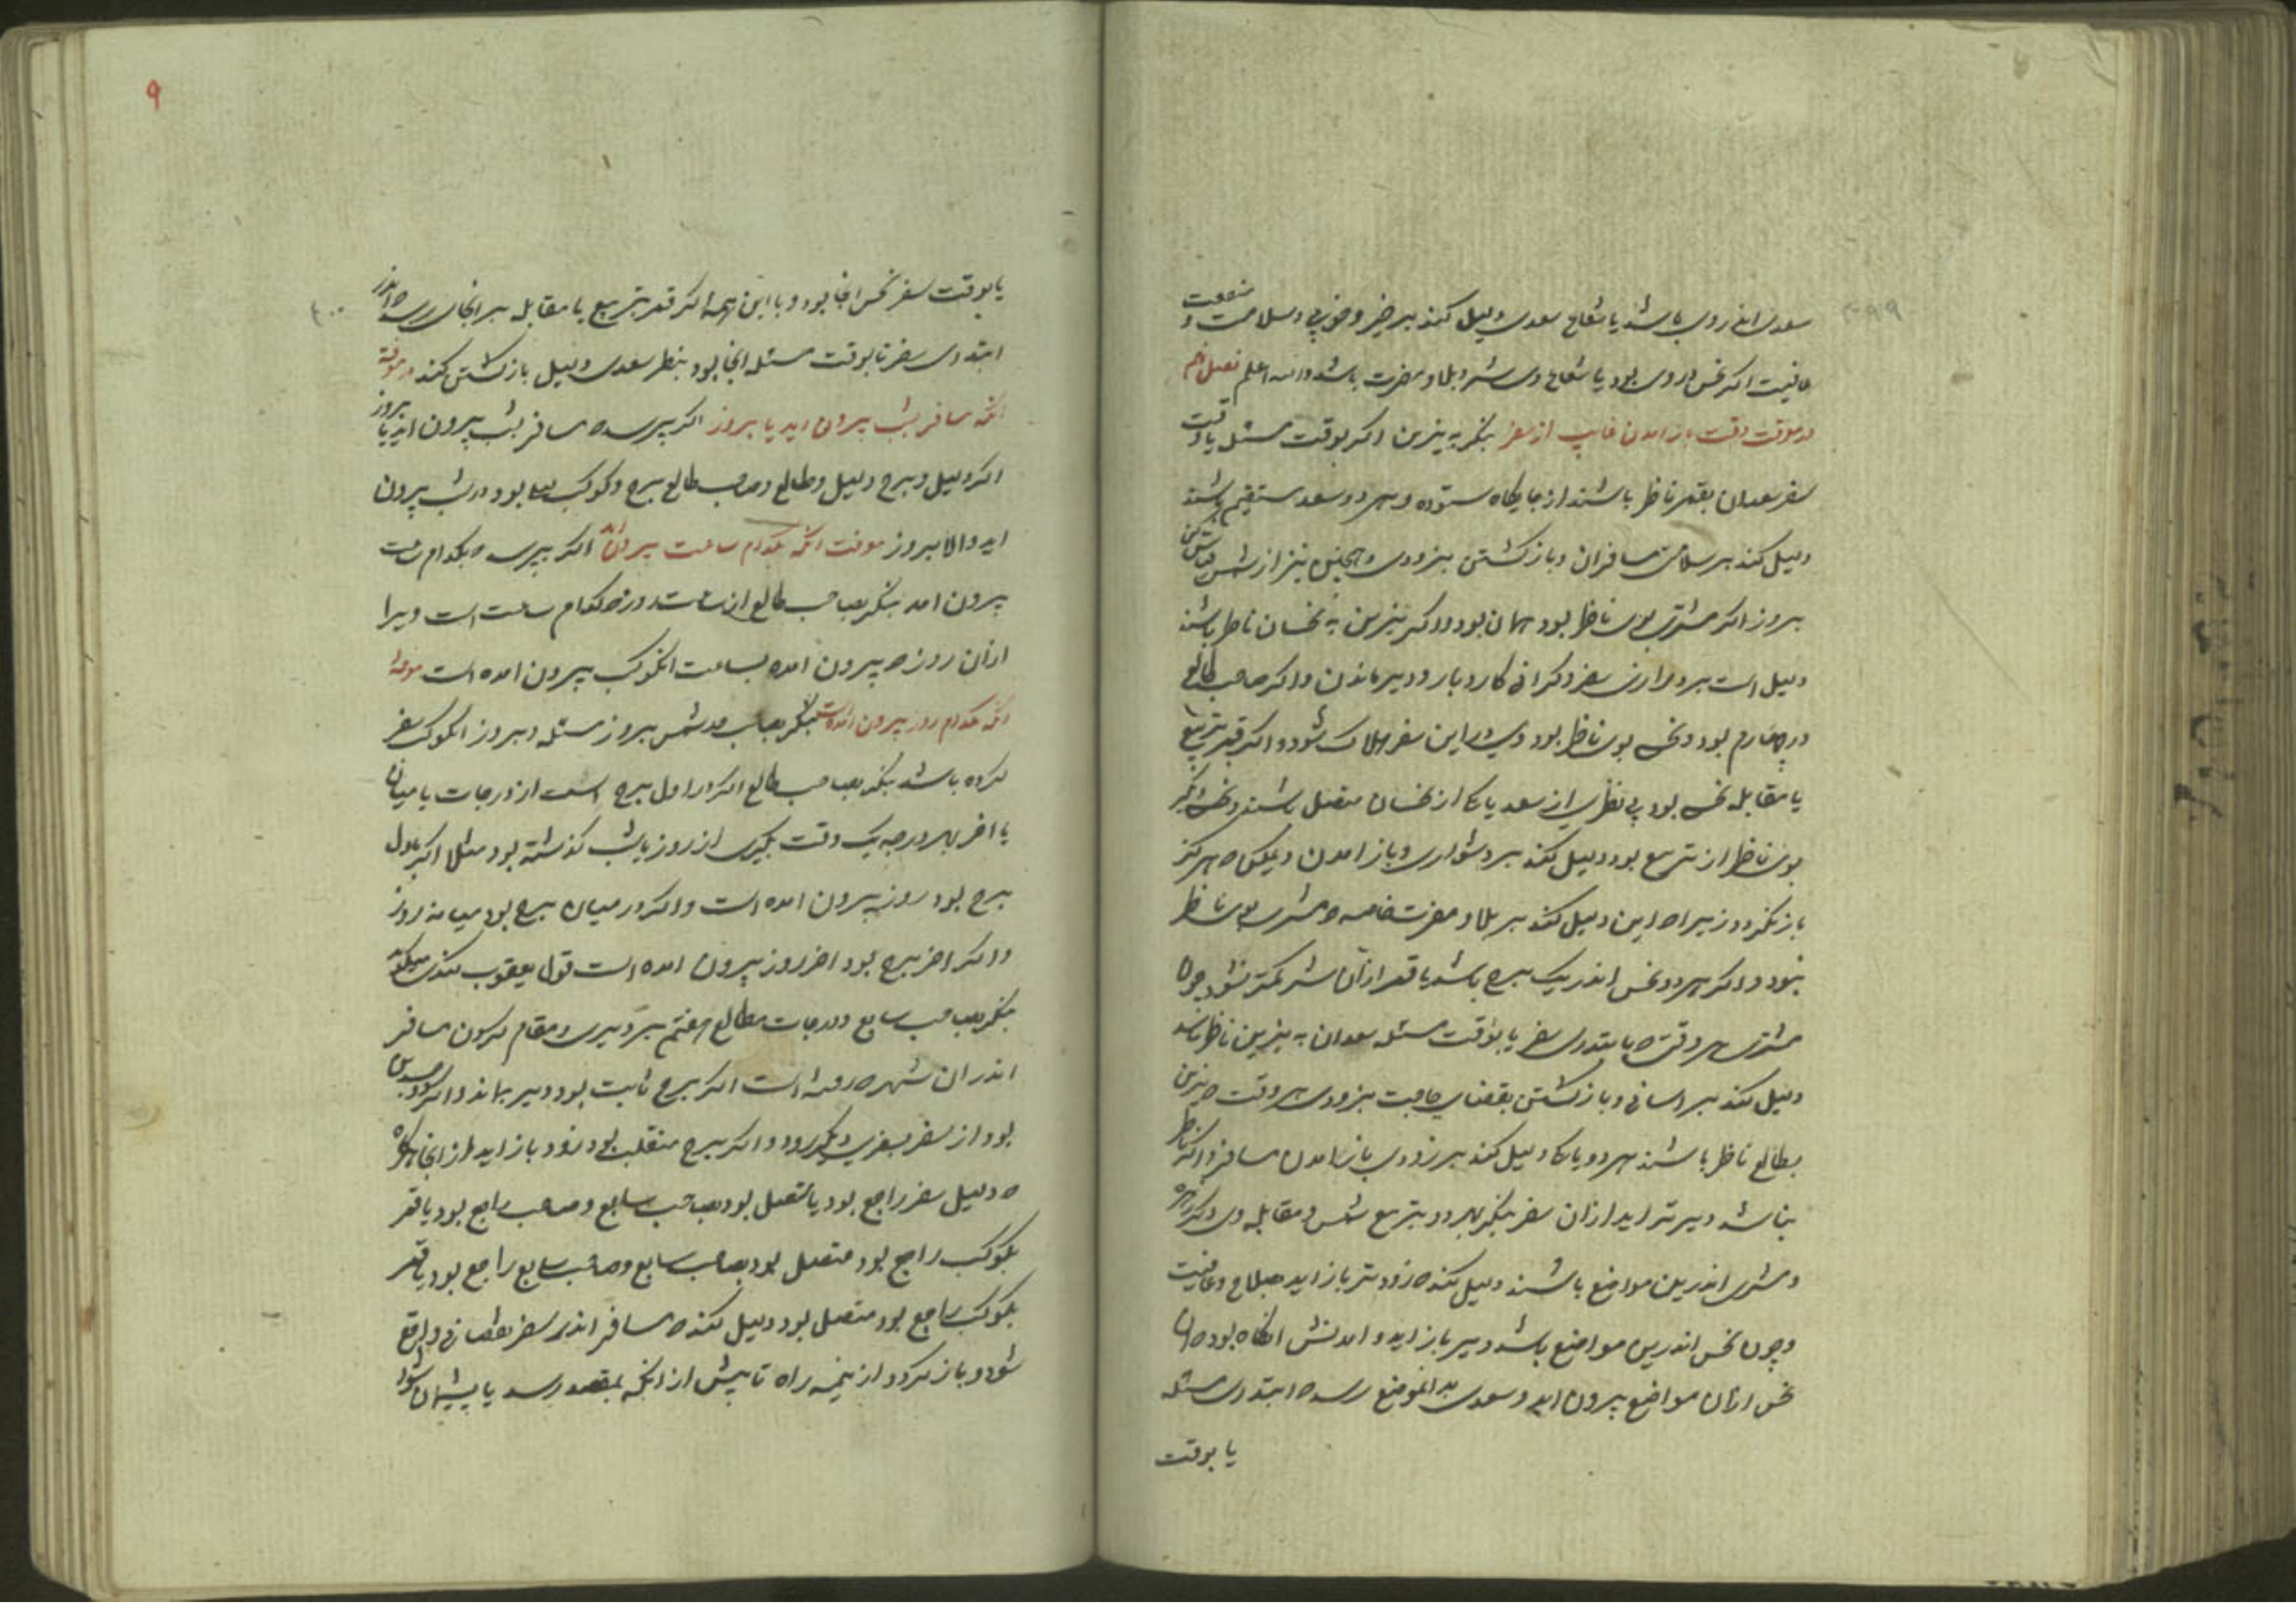 سعدی اندر وی باشد یا شعاع سعدی دلیل کند بر خیر و خوبی و سلامت و منفعت
عافیت اگر نحس در وی بود یا شعاع وی شر و بلا و مضرت باشد والله اعلم فصل
در معرفت وقت باز امدن غایب از سفر بنگر به نیرین اگر بوقت مسئله یا وقت
سفر سعدان بقمر ناظر باشند از جایگاه ستوده و هر دو سعد مستقیم باشند
دلیل کند بر سلامتی مسافران و باز گشتن بزودی و همچنین نیز از شمس
بروز اگر مشتری بوی ناظر بود همان بود و اگر نیرین به نحسان ناظر باشند
دلیل است بر درازی سفر و گرانی کار و بار و دیر ماندن و اگر صاحب طالع
در چهارم بود و نحس بوی ناظر بود وی در این سفر هلاک شود و اگر قمر بتربیع
یا مقابله نحس بود بی نظری از سعد یا یکی از نحسان متصل باشد و نحس دیگر
بوی ناظر از تربیع بود دلیل کند بر دشواری و باز امدن و لیکن که هرگز
باز نگردد زیرا که این دلیل کند بر بلا و مضرت خاصه که مشتری بوی ناظر
نبود و اگر هر دو نحس اندر یک برج باشد یا قمر از آن شر کمتر شود چون
مشتری هر وقتی که بابتدای سفر یا بوقت مسئله سعدان به نیرین ناظر باشد
دلیل کند بر اسانی و باز گشتن بقضای حاجت بزودی هر وقت که نیرین
بطالع ناظر باشند هر دو یا یکی دلیل کند بر زودی باز امدن مسافر و اگر ناظر
نباشد دیرتر اید از ان سفر بنگر بهر دو بتربیع شمس و مقابله وی اگر زهره
و مشتری اندرین مواضع باشند دلیل کند که زودتر باز اید بصلاح و عافیت
و چون نحس اندرین مواضع باشد دیر باز اید و امدنش انگاه بود که ان
نحس از ان مواضع بیرون اید و سعدی بدانموضع رسد که ابتدای مسئله
یا بوقت
۹
یا بوقت سفر نحس انجا بود و با این همه اگر قمر بتربیع یا مقابله بر انجای رسد که اندر
ابتدای سفر تا بوقت مسئله انجا بود بنظر سعدی دلیل باز گشتن کند در معرفة
انکه مسافر بشب بیرون اید یا بروز اگر پرسد که مسافر بشب بیرون اید یا بروز
اگر دلیل و برج دلیل و طالع و صاحب طالع برج و کوکب لیلی بود در شب بیرون
اید والا بروز معرفت انکه بکدام ساعت بیرون اید اگر بپرسد که بکدام ساعت
بیرون امد بنگر بصاحب طالع ان ساعت روز که کدام ساعت است ویرا
از ان روز که بیرون امده بساعت انکوکب بیرون امده است معرفة
انکه بکدام روز بیرون امده است بنگر بصاحب حد شمس بروز مسئله و بروز انکوکب سفر
کرده باشد بنگر بصاحب طالع اگر در اول برج است از درجات یا میان
یا اخر بهر درجه یک وقت بگیری از روز یا شب گذشته بود مثلا اگر باول
برج بود روز بیرون امده است و اگر در میان برج بود میانه روز
و اگر اخر برج بود اخر روز بیرون امده است قول یعقوب کندی میگوید
بنگر بصاحب سابع و درجات مطالع هفتم بر دیری و مقام کردن مسافر
اندر ان شهر که رفته است اگر برج ثابت بود دیر بماند و اگر ذو جسدین
بود از سفر بسفری دیگر رود و اگر برج منقلب بود زود باز اید از انجا هرگاه
که دلیل سفر راجع بود یا متصل بود بصاحب سابع و صاحب راجع بود یا قمر
بکوکب راجع بود متصل بود بصاحب سابع و صاحب سابع راجع بود یا قمر
بکوکب راجع بود متصل بود دلیل کند که مسافر اندر سفر واقع
شود و باز گردد از نیمه راه تا پیش از انکه بمقصد رسد یا پشیمان شود